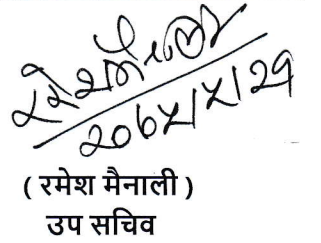 रमेश मैनाली
२०७५।५।२१
( रमेश मैनाली )
उप सचिव